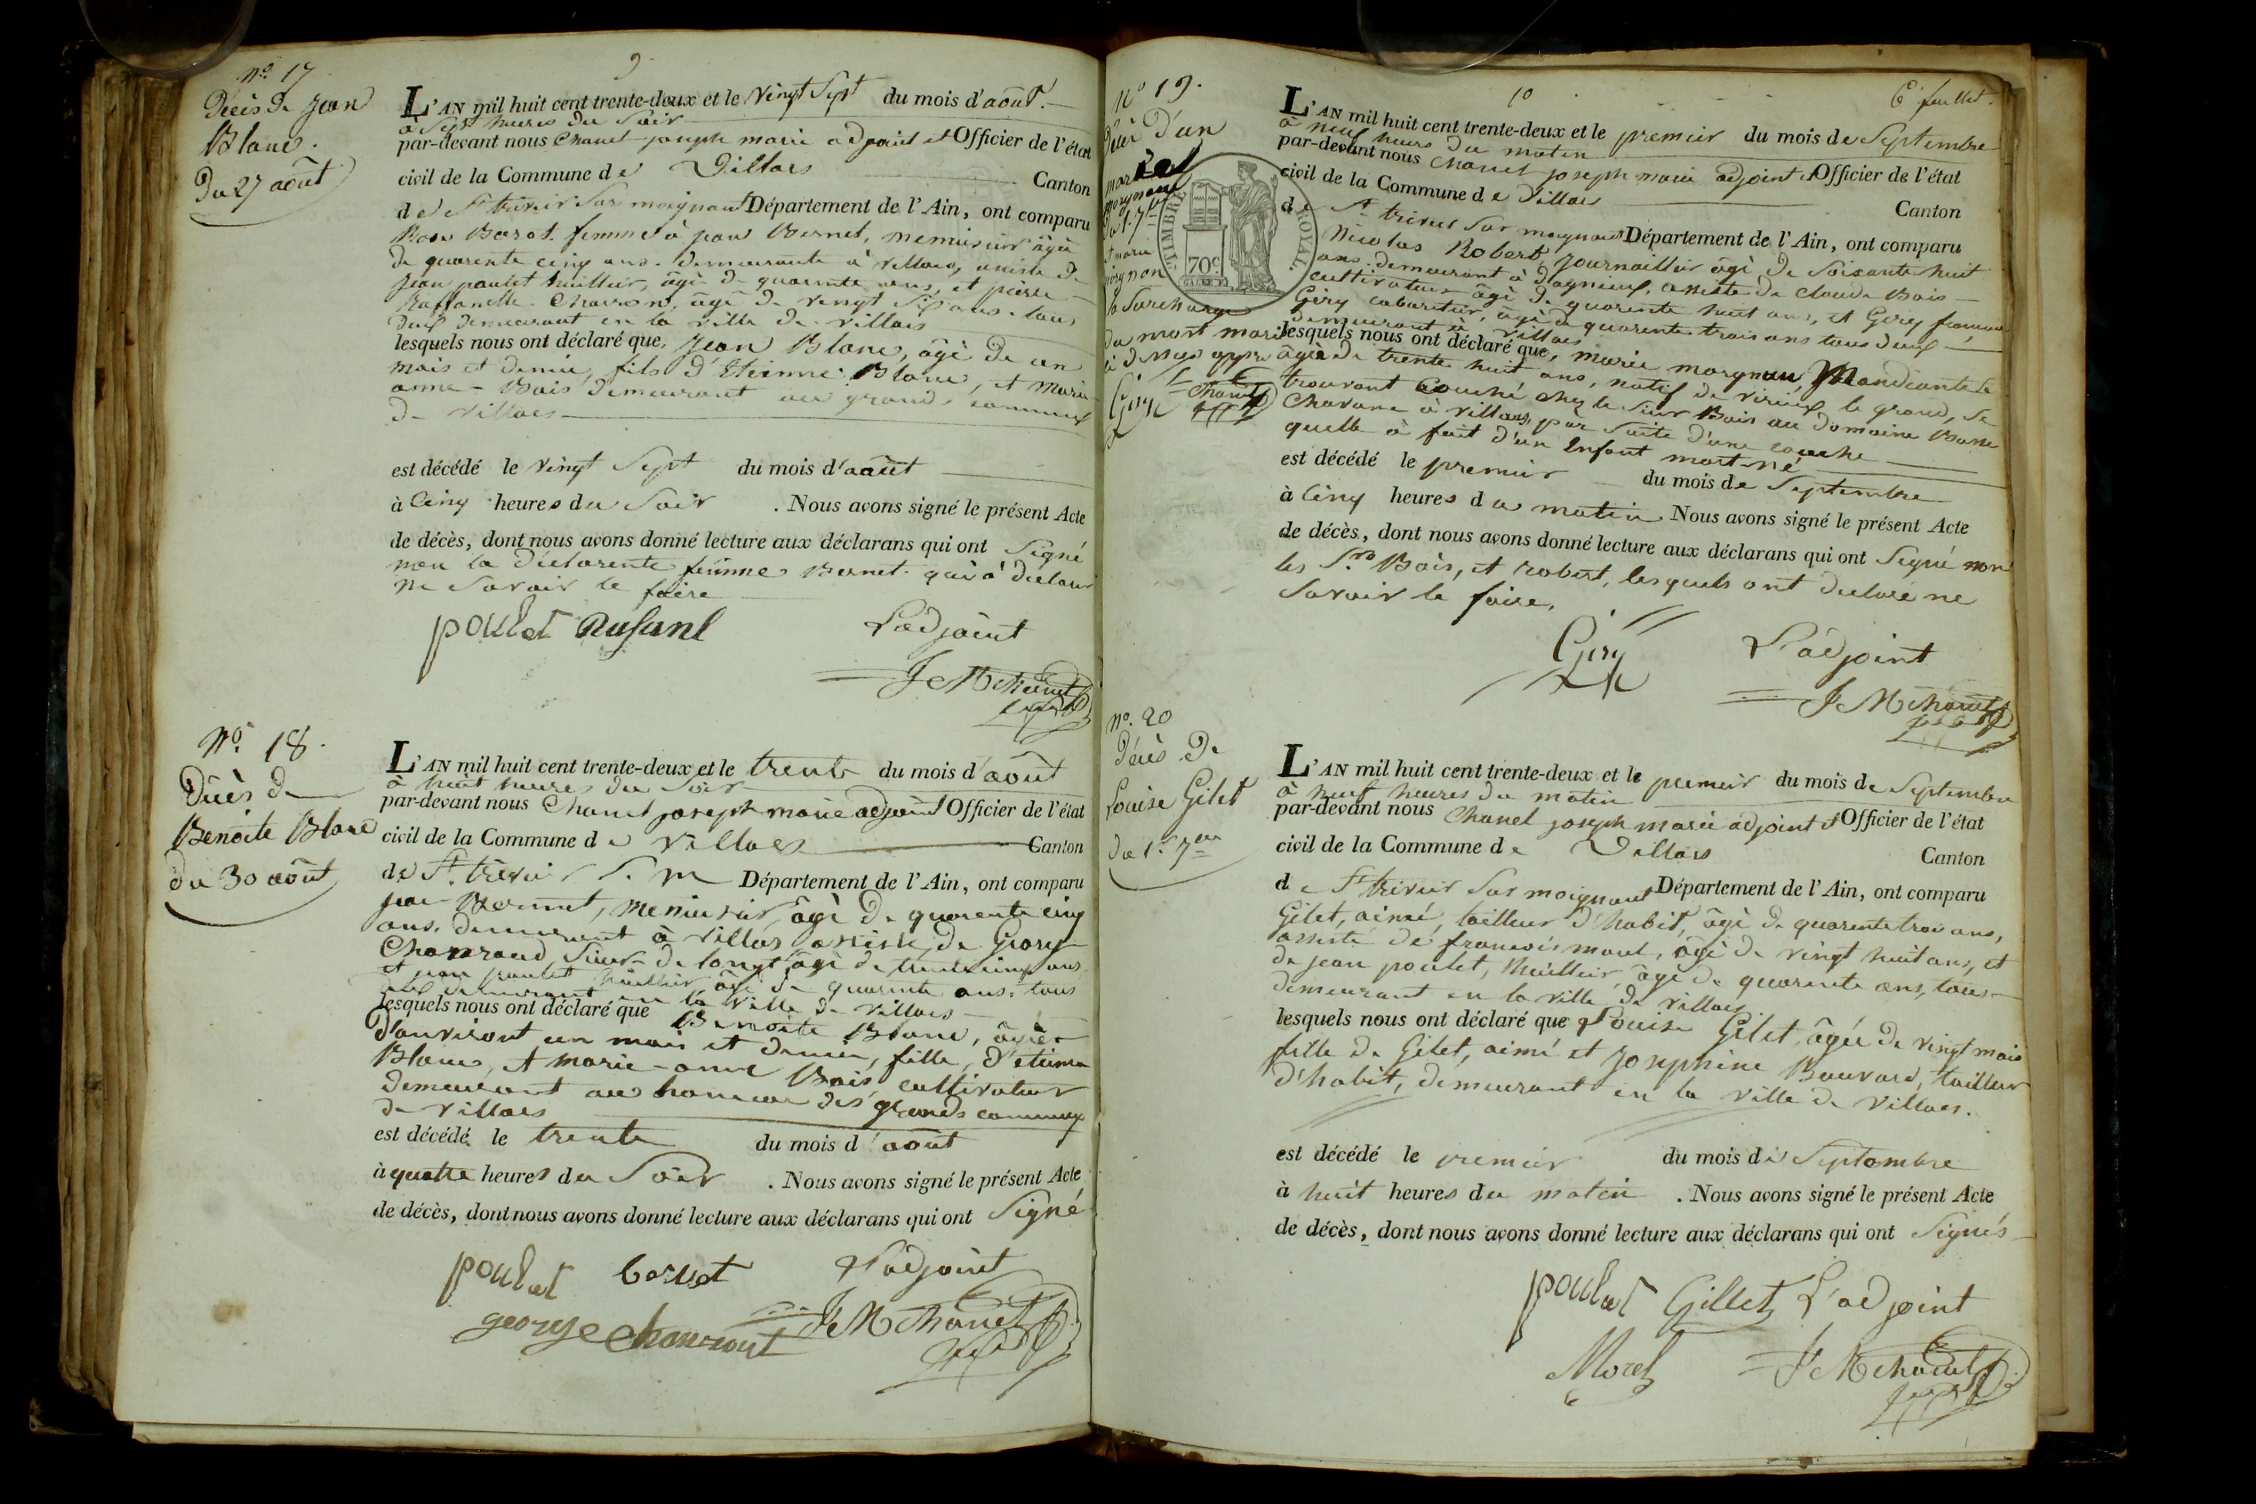 9
n.° 17
Décès de Jean
Blanc.
Du 27 août
L'AN mil huit cent trente-deux et le vingt Sept du mois d'août.
à Sept heures du Soir
par-devant nous Chanel joseph marie adjoint et Officier de l'état
civil de la Commune de Villars Canton
de St trivier Sur moignant Département de l'Ain, ont comparu
femme à jean Bernet, menuisier âgée
de quarente cinq ans. demeurante à Villars, assiste de
Jean poulet huillier, âgé de quarente ans, et pierre
Charron, âgé de vingt Six ans. tous
deux demeurant en la ville de villars
lesquels nous ont déclaré que, Jean Blanc, âgé de un
mois et demie, fils d'Etienne Blanc, et Marie
anne - Bais demeurant au grands communs
de villars
est décédé le vingt Sept du mois d'août
à Cinq heures du Soir . Nous avons signé le présent Acte
de décès, dont nous avons donné lecture aux déclarans qui ont Signé
non la Déclarente femme Bernet qui à déclaré
ne Savoir le faire
poulet L'adjoint
J M Chanel
N° 18.
Décès de
Benoite Blanc
du 30 août
L'AN mil huit cent trente-deux et le trente du mois d'août
à huit heures du Soir
par-devant nous Chanel joseph marie adjoint Officier de l'état
civil de la Commune de Villars Canton
de St. trivier S. m Département de l'Ain, ont comparu
jean Bernet, menuisier, âgé de quarente cinq
ans. demeurant à Villars assisté de George
Chanrond, Sieur de long, âgé de trente cinq ans
et jean poulet huillier âgé de quarente ans. tous
deux demeurant en la ville de villars
lesquels nous ont déclaré que Benoite Blanc, âgée
d'environt un mois et demie, fille, d'etienne
Blanc, et marie-anne Bais cultivateur
demeurant au hameau des grands communs
de villars
est décédé le trente du mois d'août
à quatre heures du Soir . Nous avons signé le présent Acte
de décès, dont nous avons donné lecture aux déclarans qui ont Signé
poulet bernet L'adjoint
george chanrond J M Chanel
10 6e feuillet.
N° 19.
Décè D'un
marie
morgnon
Du 1. 7bre
la Surcharge
du mort marie
à dessus appr
Géry Chanel
TIMBRE ROYAL.
70c.
L'AN mil huit cent trente-deux et le premier du mois de Septembre
à neuf heures du matin
par-devant nous Chanel joseph marie adjoint et Officier de l'état
civil de la Commune de Villars Canton
de St trivier Sur moignant Département de l'Ain, ont comparu
Nicolas Robert, journaillier âgé de Soixante huit
ans. demeurant à dagneux, assiste de Claude Bais
cultivateur âgé de quarente huit ans, et Gery françois
Géry cabaretier, âgé de quarente trois ans tous deux
demeurant à villars
lesquels nous ont déclaré que, marie morgnon, Mandiante
âgée de trente huit ans, natif de virieux le grand, se
trouvant couché chez le Sieur Bais au domaine Basse
Chavane à villars, par Suite d'une couche
quelle à fait d'un Enfant mort-né
est décédé le premier du mois de Septembre
à Cinq heures du matin Nous avons signé le présent Acte
de décès, dont nous avons donné lecture aux déclarans qui ont Signé non
les Srs Bais, et robert, lesquels ont declaré ne
Savoir le faire.
Géry L'adjoint
J M Chanel
N°. 20
Décès De
Louise Gilet
du 1er 7bre
L'AN mil huit cent trente-deux et le premier du mois de Septembre
à neuf heures du matin
par-devant nous Chanel joseph marie adjoint et Officier de l'état
civil de la Commune de Villars Canton
de St trivier Sur moignant Département de l'Ain, ont comparu
Gilet, aimé, tailleur d'habit, âgé de quarente trois ans,
assisté de françois morel, âgé de vingt huit ans, et
de jean poulet, huillier, âgé de quarente ans, tous
demeurant en la ville de villars
lesquels nous ont déclaré que Louise Gilet, âgée de vingt mois
fille de Gilet, aimé et josephine Bouvard, tailleur
d'habit, demeurant en la ville de villars.
est décédé le premier du mois de Septembre
à huit heures du matin . Nous avons signé le présent Acte
de décès, dont nous avons donné lecture aux déclarans qui ont Signés
poulet Gillet L'adjoint
Morel J M Chanel